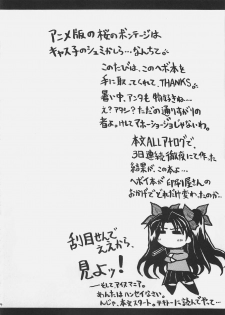 アニメ版の桜のボンテージは
キャス子のシュミかしら…なんちて。
このたびは、このヘボ本を
手に取ってくれてTHANKS。
暑い中、アンタも物好きね…
え？アタシ？ただの通りすがりの
者よ。けしてマホーショージョじゃないわ。
本文ALLアナログで
3日連続徹夜にて作った
結果が、この本よ…
ヘボイ本が印刷屋さんの
おかげでどれだけ変わったのか…
刮目せんで
ええから、
見よッ！
ーそしてアイスマニア。
あんたはハンセイなさい。
んじゃ、本文スタート。テキトーに読んでて…